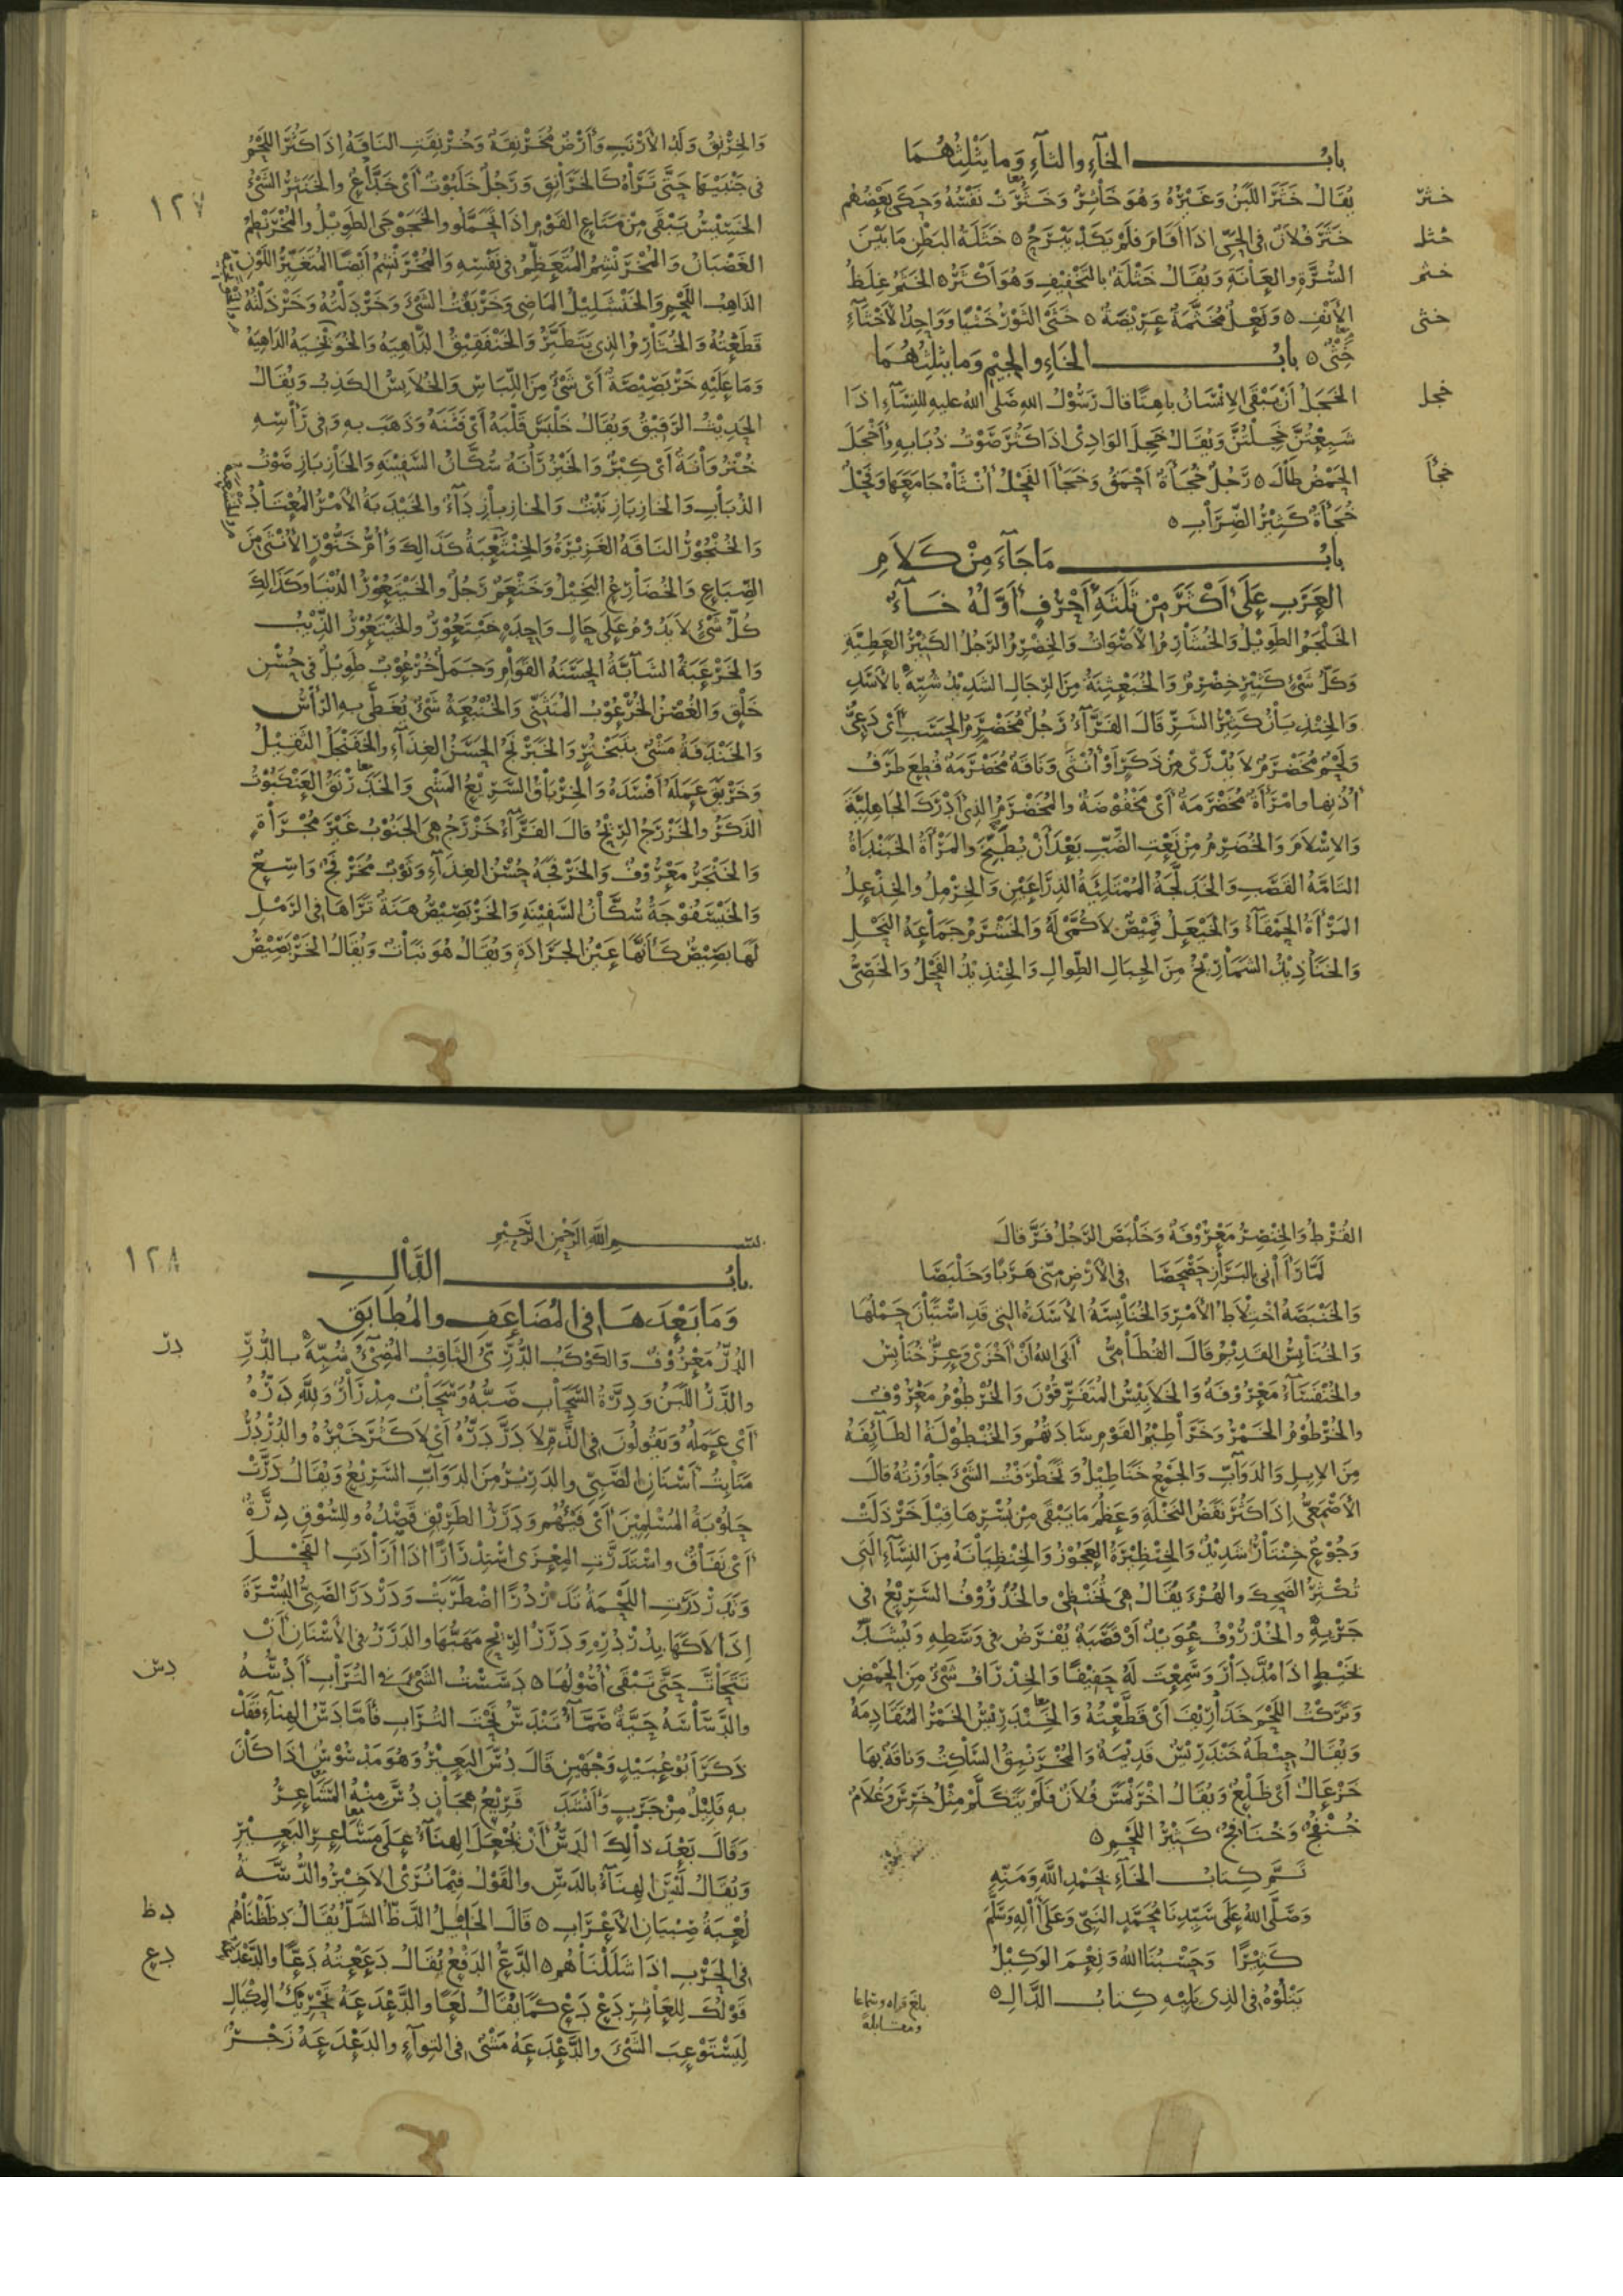 باب الخاء والثاء وما يثلثهما
خثر يقال خثر اللبن وغيره وهو خاثر وخثرت نفسه وحكى بعضهم
خثل خثر فلان في الحي اذا اقام فلم يكد يبرح ٥ خثلة البطن ما بين
خثم السرة والعانة ويقال خثلة بالتخفيف وهو اكثر ٥ الخثم غلظ
خثى الأنف ٥ ونعل مخثمة عريضة ٥ خثى الثور خثيا وواحد الأخثاء
خثى ٥ باب الخاء والجيم وما يثلثهما
خجل الخجل أن يبقى الإنسان باهتا قال رسول الله صلى الله عليه للنساء اذا
شبعتن خجلتن ويقال خجل الوادي اذا كثر صوت ذبابه وأخجل
خجأ الحمض طال ٥ رجل خجأة احمق وخجأ الفحل أنثاه جامعها وفحل
خجأة كثير الضراب ٥
باب ما جاء من كلام
العرب على أكثر من ثلثة أحرف أوله خاء
الخلجم الطويل والخشارم الأصوات والخضرم الرجل الكثير العطية
وكل شيء كثير خضرم والخبعثنة من الرجال الشديد شبه بالأسد
والخنذيان كثير الشر قال الفراء رجل مخضرم الحسب أي دعي
ولحم مخضرم لا يدرى من ذكر أو أنثى وناقة مخضرمة قطع طرف
أذنها وامرأة مخضرمة أي مخفوضة والمخضرم الذي أدرك الجاهلية
والإسلام والخضرم من نعت الضب بعد أن يطبخ والمرأة الخبنداة
التامة القصب والخدلجة الممتلئة الذراعين والخرمل والخذعل
المرأة الحمقاء والخيعل قميص لا كمى له والخشرم جماعة النحل
والخناذيذ الشماريخ من الجبال الطوال والخنذيذ الفحل والخصى
١٢٧
والخرنق ولد الأرنب وأرض مخرنقة وخرنقت الناقة إذا كثر اللحم
في جنبيها حتى تراه كالخرانق ورجل خلبوت أي خداع والخنثر الشيء
الخسيس يبقى من متاع القوم اذا تحملوا والخجوجى الطويل والمخرنطم
الغضبان والمخرنشم المتعظم في نفسه والمخرنشم أيضا المتغير اللون
الذاهب اللحم والخنشليل الماضي وخربقت الشيء وخردلته وخرذلته
قطعته والخثارم الذي يتطير والخنفقيق الداهية والخويخية الداهية
وما عليه خربصيصة أي شيء من اللباس والخلابس الكذب ويقال
الحديث الرقيق ويقال خلبس قلبه أي فتنه وذهب به وفي رأسه
خنزوانة أي كبر والخيزرانة سكان السفينة والخازباز صوت
الذباب والخازباز نبت والخازباز داء والخيدبة الأمر المعتاد
والخنجور الناقة الغزيرة والخنثعبة كذلك وأم خنور الأنثى من
الضباع والخضارع البخيل وخثعم رجل والخيتعور الدنيا وكذلك
كل شيء لا يدوم على حال واحدة خيتعور والخيتعور الذيب
والخرعبة الشابة الحسنة القوام وجمل خرعوب طويل في حسن
خلق والغصن الخرعوب المتثني والخنبعة شيء يغطى به الرأس
والخندفة مشي بتبختر والخبرنج الحسن الغذاء والخفنجل الثقيل
وخربق عمله أفسده والخرباق السريع المشي والخدرنق العنكبوت
الذكر والخزرج الريح قال الفراء خزرج هي الجنوب غير مجراة
والخنجر معروف والخرفجة حسن الغذاء وثوب مخرفج واسع
والخيسفوجة سكان السفينة والخربصيص هنة تراها في الرمل
لها بصيص كأنها عين الجرادة ويقال هو نبات ويقال الخربصيص
القرط والخنصر معروفة وخلبص الرجل فر قال
لما رآني بالبراز حصحصا في الأرض مني هربا وخلبصا
والخنبصة اختلاط الأمر والخنابسة الأسدة التي قد استبان حملها
والخنابس القديم قال القطامي أبى الله أن أخزى وعز خنابس
والخنفساء معروفة والخلابيس المتفرقون والخرطوم معروف
والخرطوم الخمر وخراطيم القوم ساداتهم والخنطولة الطائفة
من الإبل والدواب والجمع خناطيل وتخطرفت الشيء جاوزته قال
الأصمعي إذا كثر نفض النخلة وعظم ما يبقى من بسرها قيل خردلت
وجوع خنتار شديد والخنظيرة العجوز والخنظيانة من النساء التي
تكثر الضحك والهزء يقال هي تخنظي والخذروف السريع في
جريه والخذروف عويد أو قصبة يفرض في وسطه ويشد
بخيط اذا مد دار وسمعت له حفيفا والخذراف شيء من الحمض
وتركت اللحم خذاريف أي قطعته والخندريس الخمر المتقادمة
ويقال حنطة خندريس قديمة والمخرنمق الساكت وناقة بها
خزعال أي ظلع ويقال اخرنمس فلان فلم يتكلم مثل خرس وغلام
خنفج وخنافج كثير اللحم ٥
تم كتاب الخاء بحمد الله ومنه
وصلى الله على سيدنا محمد النبي وعلى آله وسلم
كثيرا وحسبنا الله ونعم الوكيل
يتلوه في الذي يليه كتاب الدال ٥
بلغ قراه وسماعا
ومقابلة
١٢٨
بسم الله الرحمن الرحيم
باب الدال
وما بعدها في المضاعف والمطابق
در الدر معروف والكوكب الدري الثاقب المضيء شبه بالدر
والدر اللبن ودرة السحاب صبه وسحاب مدرار ولله دره
أي عمله ويقولون في الذم لا در دره أي لا كثر خيره والدردر
منابت أسنان الصبي والدرير من الدواب السريع ويقال درت
حلوبة المسلمين أي فيئهم ودرر الطريق قصده وللسوق درة
أي نفاق واستدرت المعزى استدرارا اذا أرادت الفحل
وتدردرت اللحمة تدردرا اضطربت ودردر الصبي البسرة
إذا لاكها بدردره ودرر الريح مهبها والدرر في الأسنان أن
دس تتحات حتى تبقى أصولها ٥ دسست الشيء في التراب أدسه
والدساسة حية صماء تندس تحت التراب فأما دس الهناء فقد
ذكر أبو عبيد وجهين قال دس البعير وهو مدسوس إذا كان
به قليل من جرب وأنشد قريع هجان دس منه المساعر
وقال بعد ذلك الدس أن تجعل الهناء على مساعر البعير
ويقال ليس الهناء بالدس والقول فيما نرى الأخير والدسة
دظ لعبة صبيان الأعراب ٥ قال الخليل الدظ الشل يقال دظظناهم
دع في الحرب اذا شللناهم ٥ الدع الدفع يقال دععته دعا والدعدعة
قولك للعاثر دع دع كما يقال لعا والدعدعة تحريك المكيال
ليستوعب الشيء والدعدعة مشي في التواء والدعدعة زجر